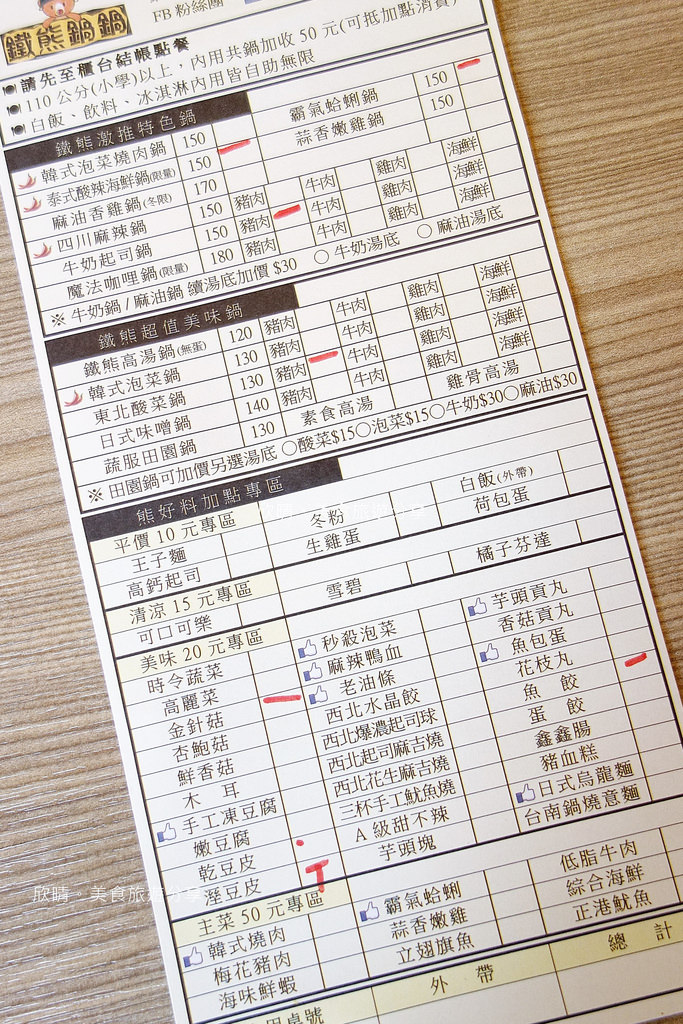 FB 粉絲團
鐵熊鍋鍋
請先至櫃台結帳點餐
110 公分(小學)以上，內用共鍋加收 50 元(可抵加點消費)
白飯、飲料、冰淇淋內用皆自助無限
鐵熊激推特色鍋
霸氣蛤蜊鍋 150
韓式泡菜燒肉鍋 150 蒜香嫩雞鍋 150
泰式酸辣海鮮鍋(限量) 150
麻油香雞鍋(冬限) 170
四川麻辣鍋 150 豬肉 牛肉 雞肉 海鮮
牛奶起司鍋 150 豬肉 牛肉 雞肉 海鮮
魔法咖哩鍋(限量) 180 豬肉 牛肉 雞肉 海鮮
※ 牛奶鍋 / 麻油鍋 續湯底加價 $30 ○ 牛奶湯底 ○ 麻油湯底
鐵熊超值美味鍋
鐵熊高湯鍋(無蛋) 120 豬肉 牛肉 雞肉 海鮮
韓式泡菜鍋 130 豬肉 牛肉 雞肉 海鮮
東北酸菜鍋 130 豬肉 牛肉 雞肉 海鮮
日式味噌鍋 140 豬肉 牛肉 雞肉 海鮮
蔬服田園鍋 130 素食高湯 雞骨高湯
※ 田園鍋可加價另選湯底 ○酸菜$15○泡菜$15○牛奶$30○麻油$30
熊好料加點專區
平價 10 元專區 冬粉 白飯(外帶)
王子麵 生雞蛋 荷包蛋
高鈣起司
清涼 15 元專區 雪碧 橘子芬達
可口可樂
美味 20 元專區 秒殺泡菜 芋頭貢丸
時令蔬菜 麻辣鴨血 香菇貢丸
高麗菜 老油條 魚包蛋
金針菇 西北水晶餃 花枝丸
杏鮑菇 西北爆濃起司球 魚 餃
鮮香菇 西北起司麻吉燒 蛋 餃
木 耳 西北花生麻吉燒 鑫鑫腸
手工凍豆腐 三杯手工魷魚燒 豬血糕
嫩豆腐 A 級甜不辣 日式烏龍麵
乾豆皮 芋頭塊 台南鍋燒意麵
溼豆皮
主菜 50 元專區 霸氣蛤蜊 低脂牛肉
韓式燒肉 蒜香嫩雞 綜合海鮮
梅花豬肉 立翅旗魚 正港魷魚
海味鮮蝦
外 帶 總 計
用桌號
欣晴。美食旅遊分享